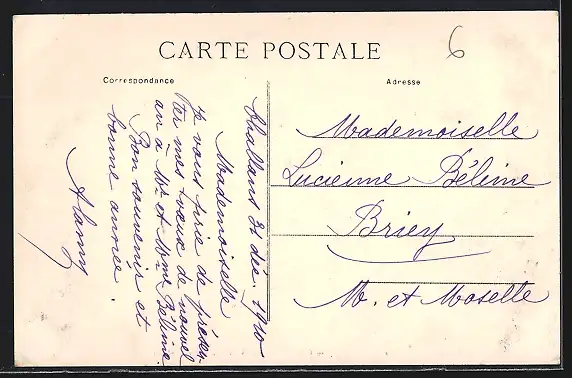 CARTE POSTALE
6
Correspondance
Adresse
Challans 31 déc. 1910
Mademoiselle
Je vous prie de présen
ter mes vœux de nouvel
an à Mr et Mme Béline
Bon souvenir et
bonne année.
Mademoiselle
Lucienne Béline
Briey
M. et Moselle